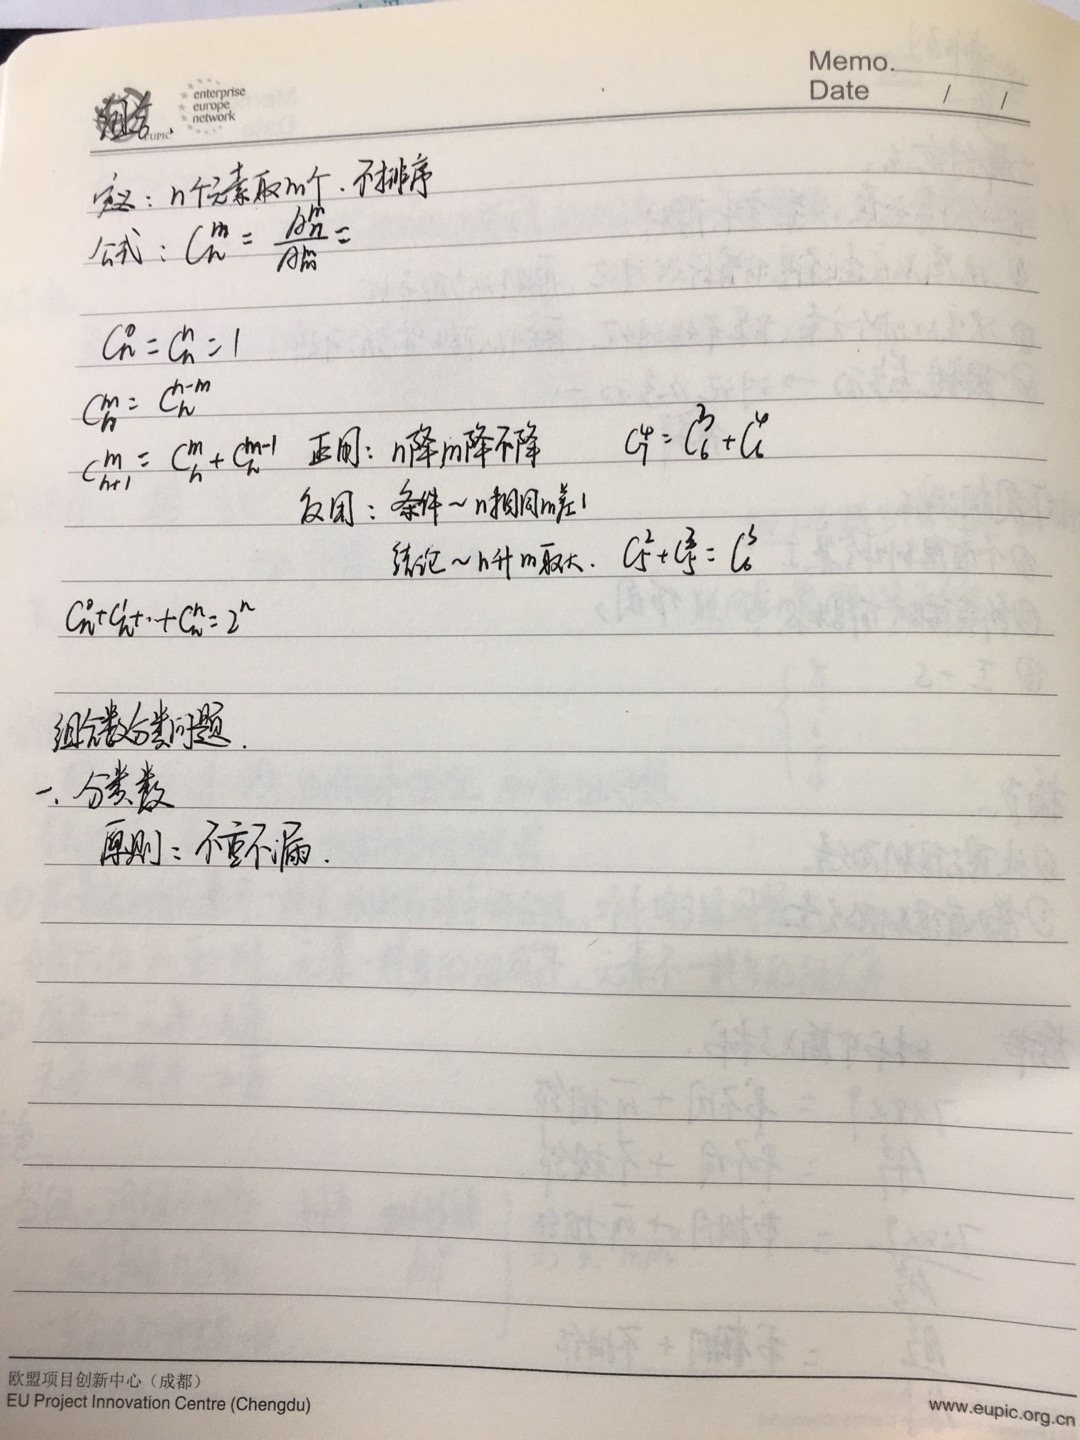 Memo.
Date / /
enterprise
europe
network
EUPIC
组合.
定义：n个元素取m个.不排序
公式：Cₙᵐ = Aₙᵐ/Aₘᵐ =
Cₙ⁰ = Cₙⁿ = 1
Cₙᵐ = Cₙⁿ⁻ᵐ
Cₙ₊₁ᵐ = Cₙᵐ + Cₙᵐ⁻¹ 正用：n降m降不降 C₇⁴ = C₆³ + C₆⁴
反用：条件～n相同m差1
结论～n升m取大. C₅² + C₅³ = C₆³
Cₙ⁰+Cₙ¹+··+Cₙⁿ=2ⁿ
组合数分类问题.
一.分类数
原则：不重不漏.
欧盟项目创新中心（成都）
EU Project Innovation Centre (Chengdu)
www.eupic.org.cn